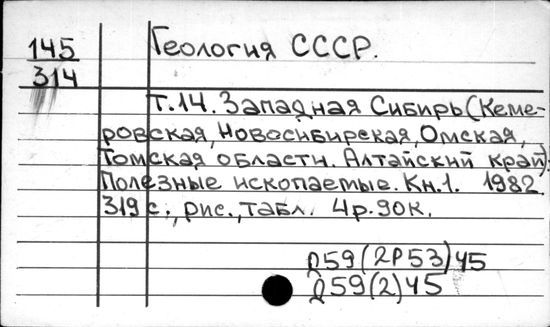 145
314
Геология СССР.
Т.14. Западная Сибирь (Кеме-
ровская, Новосибирская, Омская,
Томская области. Алтайский край).
Полезные ископаемые. Кн.1. 1982.
319 с., рис., табл. 4р.90к.
Д59(2Р53)45
Д59(2)45